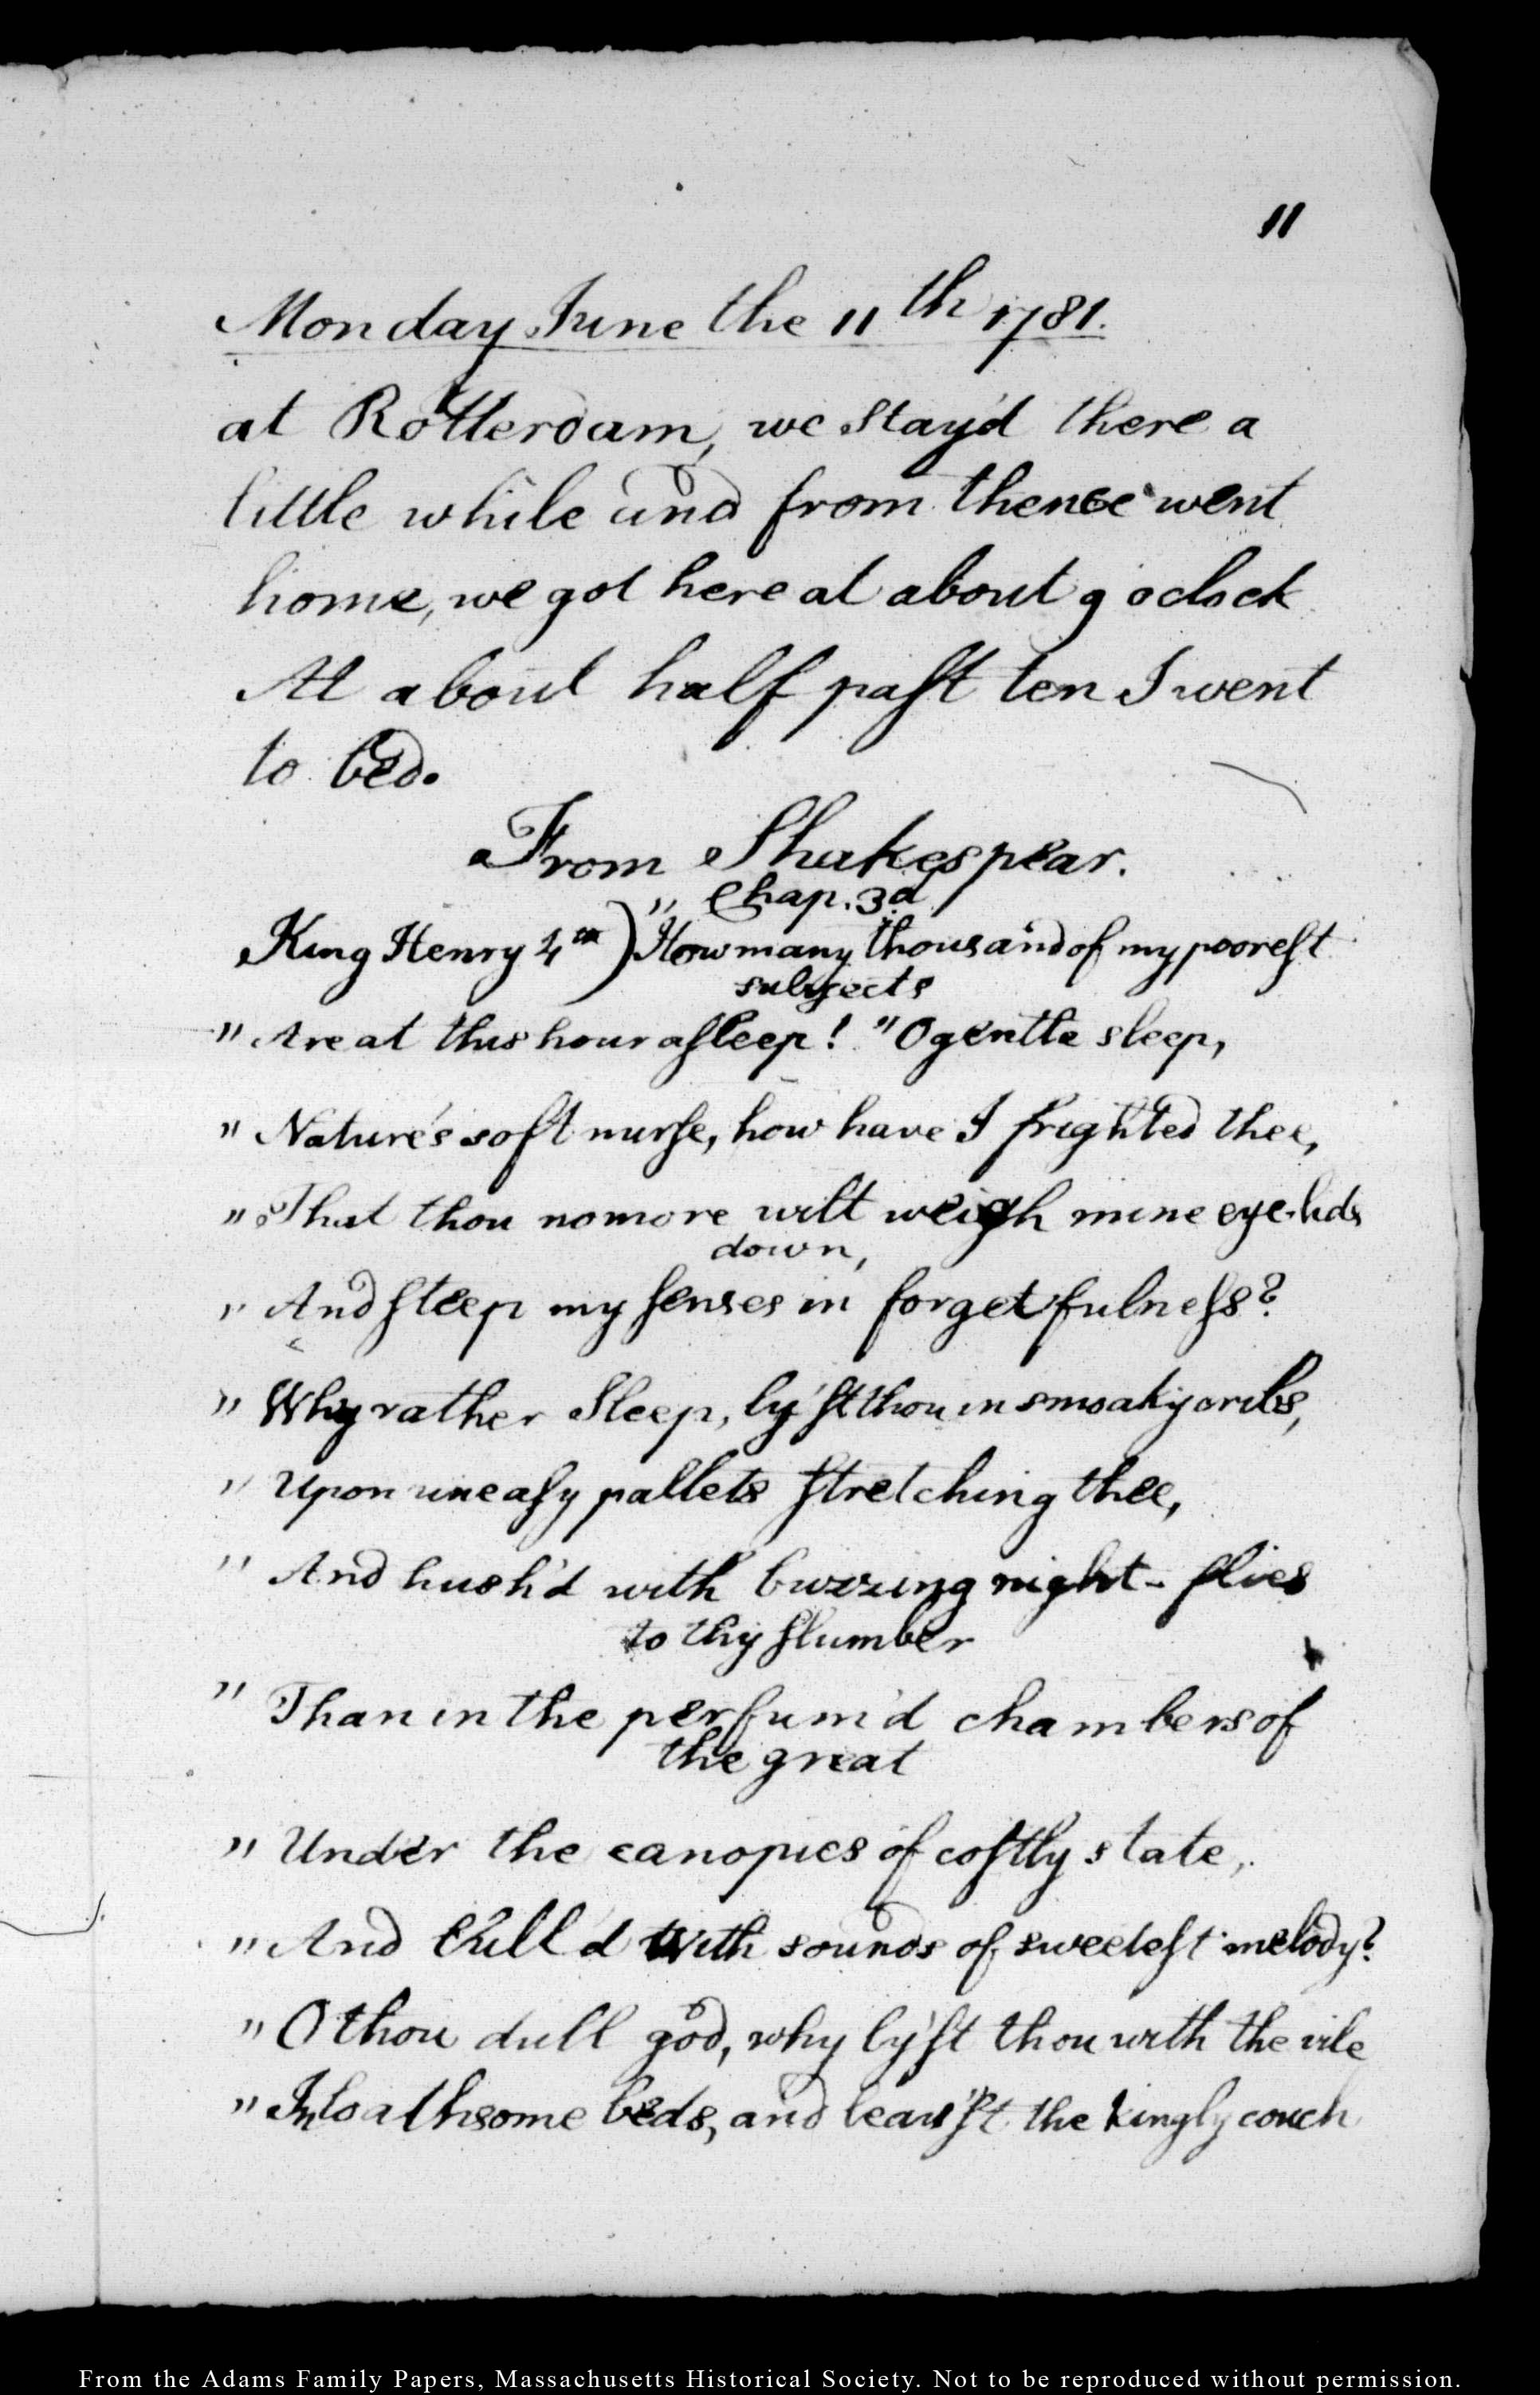 11
Monday June the 11th 1781.
at Rotterdam, we stay'd there a
little while and from thence went
home, we got here at about 9 oclock
At about half past ten I went
to bed.
From Shakespear.
" Chap. 3d
King Henry 4th) How many thousand of my poorest
subjects
" Are at this hour asleep! "O gentle sleep,
" Nature's soft nurse, how have I frighted thee,
" That thou no more wilt weigh mine eye-lids
down,
" And steep my senses in forgetfulness?
" Why rather Sleep, ly'st thou in smoaky cribs,
" Upon uneasy pallets stretching thee,
" And hush'd with buzzing night-flies
to thy slumber
" Than in the perfum'd chambers of
the great
" Under the canopies of costly state,
" And lull'd with sounds of sweetest melody?
" O thou dull god, why ly'st thou with the vile
" In loathsome beds, and leav'st the kingly couch
From the Adams Family Papers, Massachusetts Historical Society. Not to be reproduced without permission.